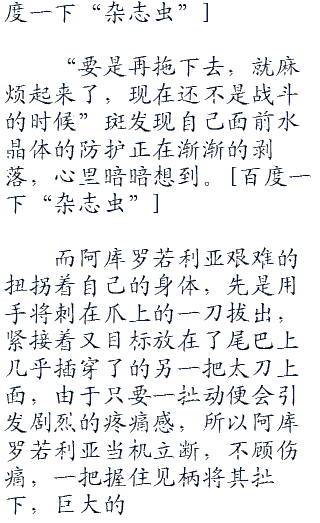 度一下“杂志虫”]
“要是再拖下去，就麻
烦起来了，现在还不是战斗
的时候”斑发现自己面前水
晶体的防护正在渐渐的剥
落，心里暗暗想到。[百度一
下“杂志虫”]
而阿库罗若利亚艰难的
扭拐着自己的身体，先是用
手将刺在爪上的一刀拔出，
紧接着又目标放在了尾巴上
几乎插穿了的另一把太刀上
面，由于只要一扯动便会引
发剧烈的疼痛感，所以阿库
罗若利亚当机立断，不顾伤
痛，一把握住见柄将其扯
下，巨大的